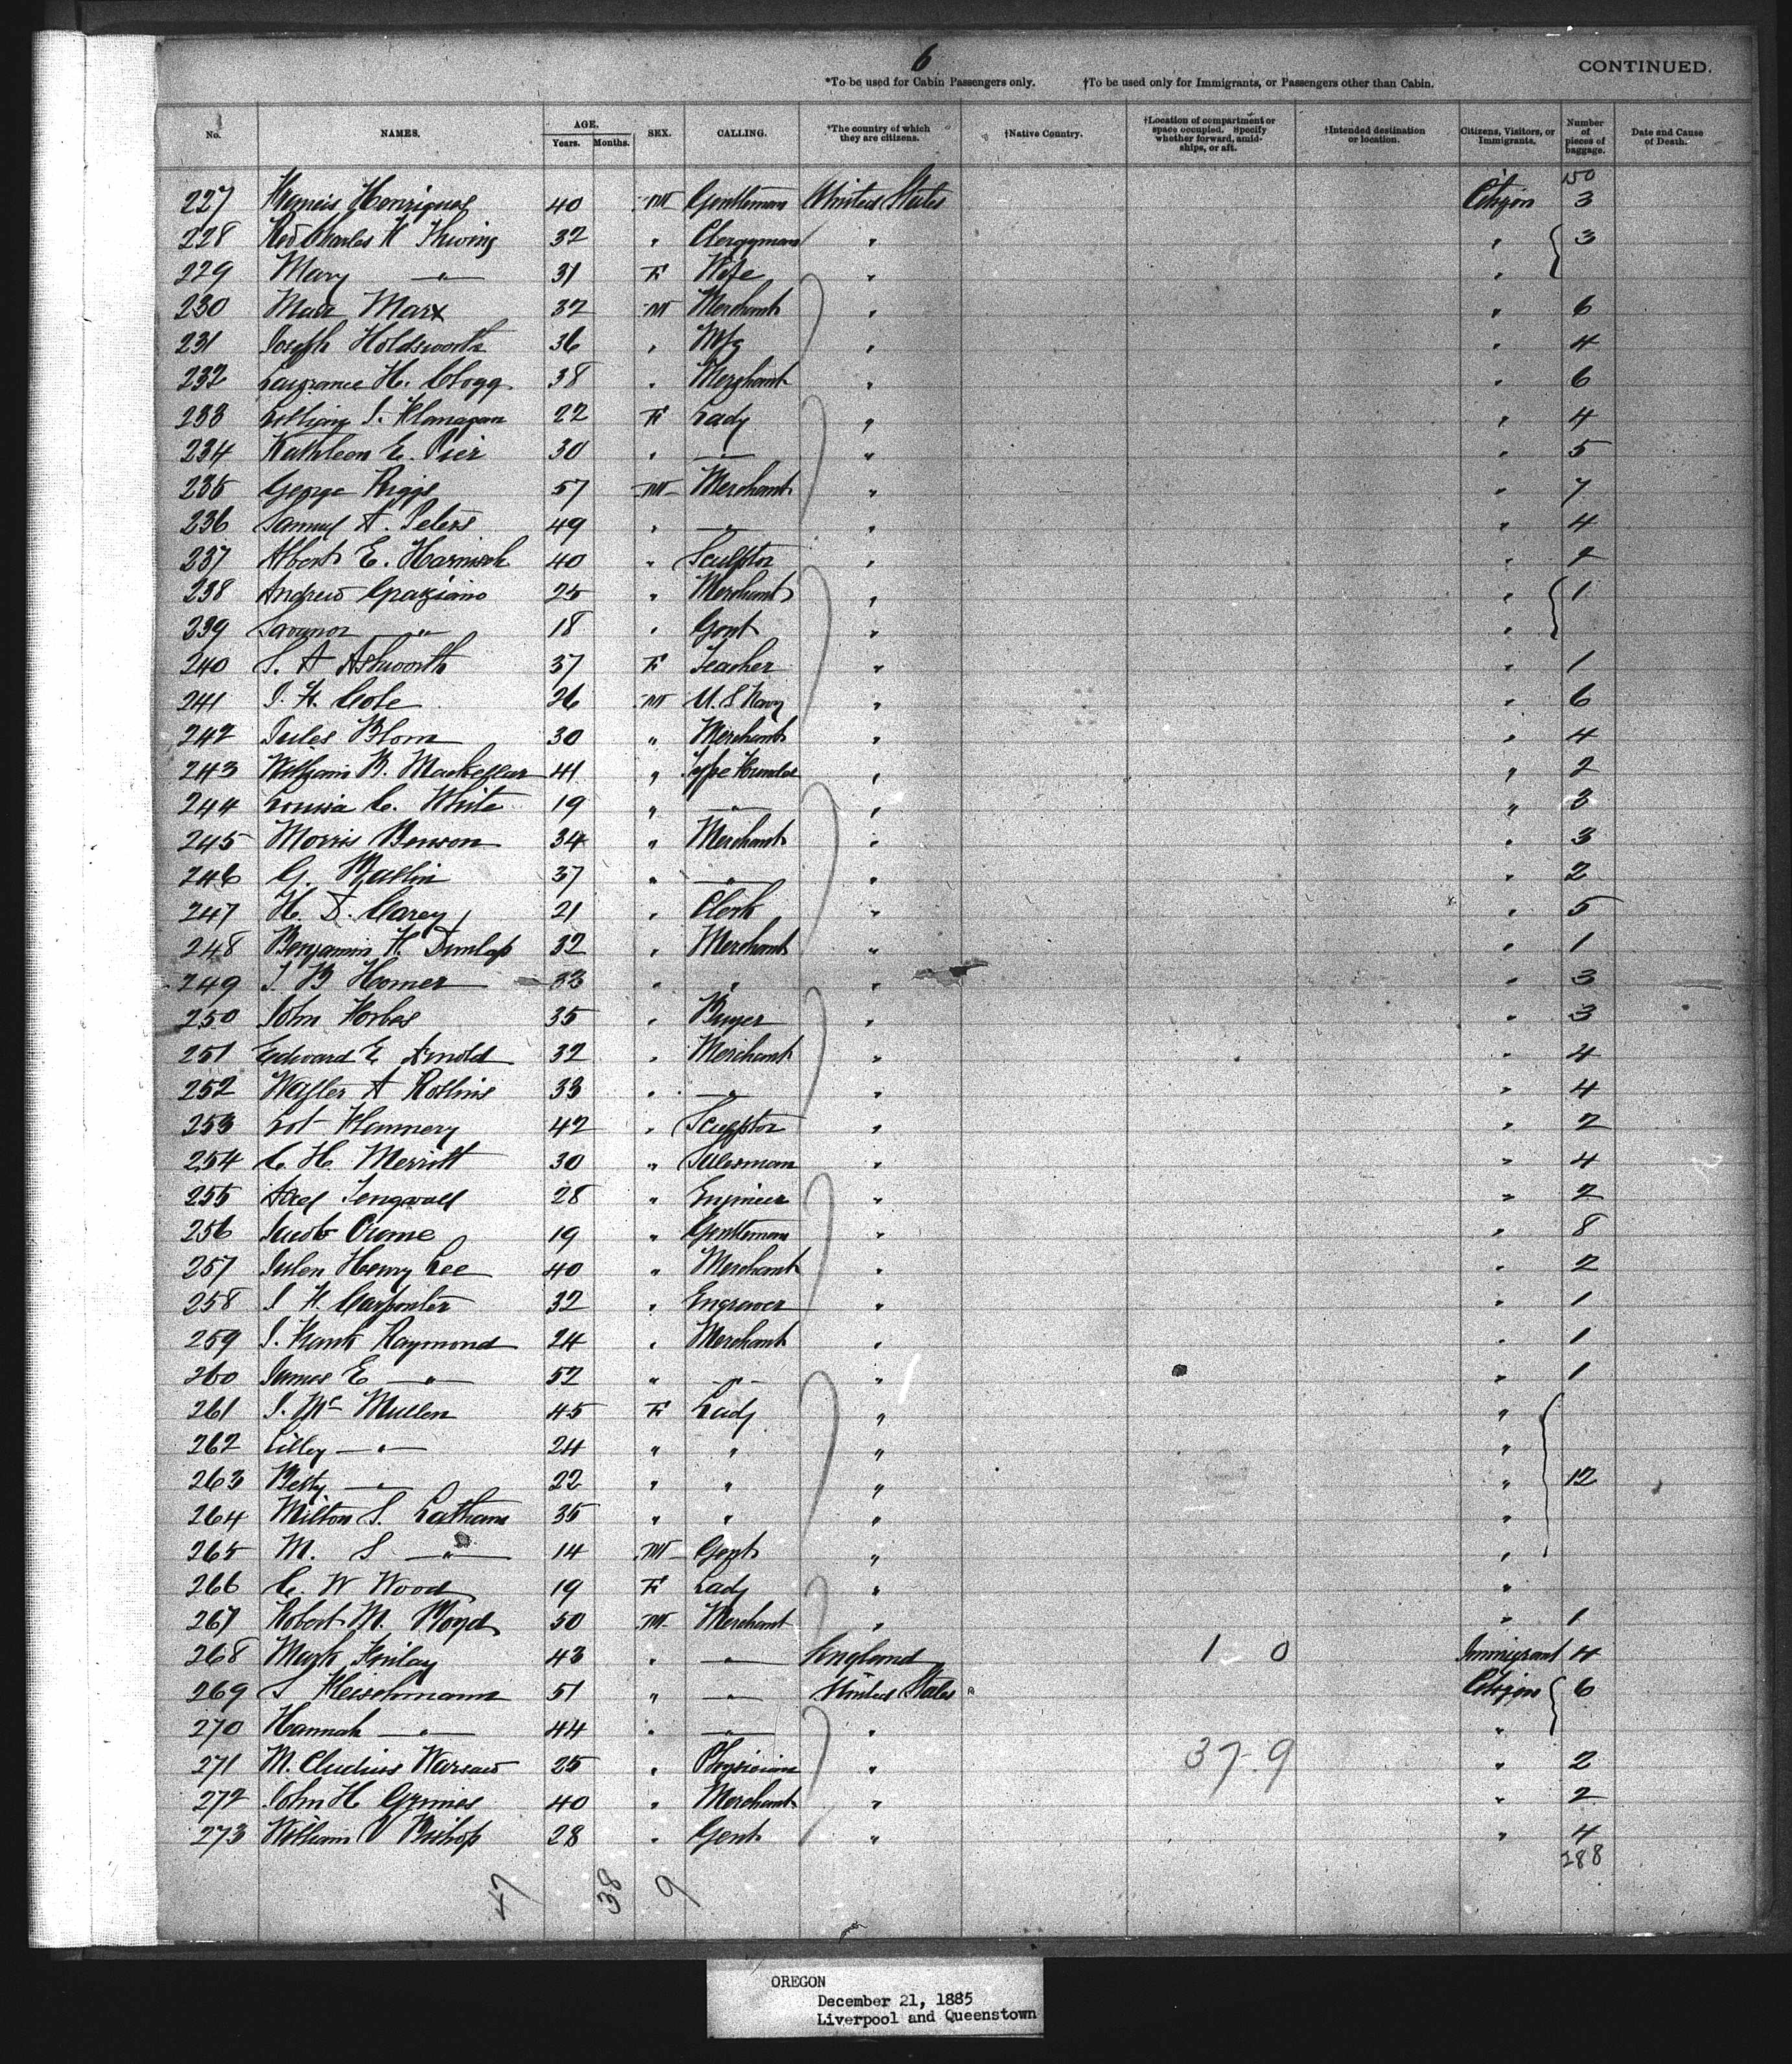 6
CONTINUED.
*To be used for Cabin Passengers only. †To be used only for Immigrants, or Passengers other than Cabin.
No. NAMES. AGE. Years. Months. SEX. CALLING. *The country of which they are citizens. †Native Country. †Location of compartment or space occupied. Specify whether forward, amidships, or aft. †Intended destination or location. Citizens, Visitors, or Immigrants. Number of pieces of baggage. Date and Cause of Death.
150
227 Francis Henriques 40 M Gentleman United States Citizen 3
228 Rev Charles F Thwing 32 " Clergyman " " 3
229 Mary " 31 F Wife " "
230 Marx 32 M Merchant " " 6
231 Joseph Holdsworth 36 " Mfg " " 4
232 Lawrance H. Clogg 38 " Merchant " " 6
233 Flanagan 22 F Lady " " 4
234 Kathleen E. Pier 30 " " " " 5
235 George Riggs 57 M Merchant " " 7
236 Samuel A. Peters 49 " " " " 4
237 Albert E. Harnisch 40 " Sculptor " " 2
238 Andrew Graziano 25 " Merchant " " 1
239 " 18 " Gent " "
240 S. A Ashworth 37 F Teacher " " 1
241 Cole 26 M U.S Navy " " 6
242 Jules Blom 30 " Merchant " " 4
243 William B. Mackellar 41 " Type Founder " " 2
244 Louisa C. White 19 " " " " 3
245 Morris Benson 34 " Merchant " " 3
246 G. Ballin 37 " " " " 2
247 H. D. Carey 21 " Clerk " " 5
248 Benjamin F. Dunlap 32 " Merchant " " 1
249 Homer 33 " " " " 3
250 John Forbes 35 " Buyer " " 3
251 Edward E Arnold 32 " Merchant " " 4
252 Walter A Rollins 33 " " " " 4
253 Lot Flannery 42 " Sculptor " " 2
254 C. H. Merritt 30 " Salesman " " 4
255 Axel Tengwall 28 " Engineer " " 2
256 Jacob Crome 19 " Gentleman " " 8
257 Henry Lee 40 " Merchant " " 2
258 Carpenter 32 " Engraver " " 1
259 J. Frank Raymond 24 " Merchant " " 1
260 James E " 52 " " " " 1
261 J. McMullen 45 F Lady " "
262 Lilley " 24 " " " "
263 Betty " 22 " " " " 12
264 Milton S. Latham 35 " " " "
265 M. S " 14 M Gent " "
266 C. W Wood 19 F Lady " "
267 Robert M. Floyd 50 M Merchant " " 1
268 Mark Finlay 43 " " England 1 0 Immigrant 4
269 Fleischmann 51 " " United States Citizen 6
270 Hannah " 44 " " " "
271 M. Warsaw 25 " Physician " 37-9 " 2
272 John H Grimes 40 " Merchant " " 2
273 William V Bishop 28 " Gent " " 4
288
47 38 9
OREGON
December 21, 1885
Liverpool and Queenstown